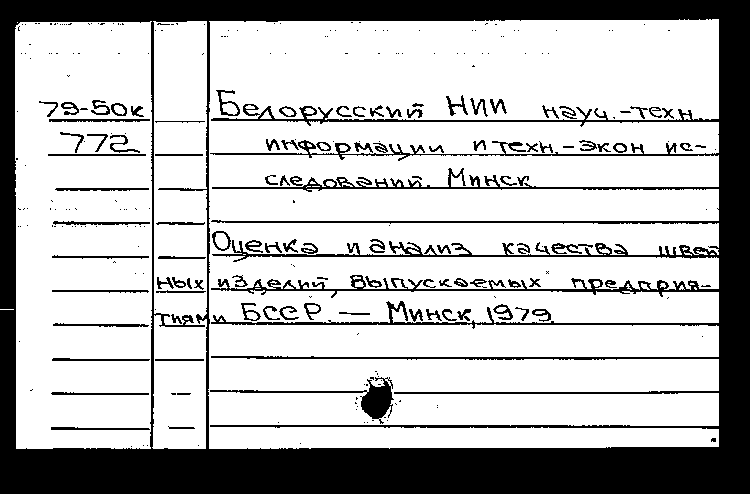 79-50к Белорусский НИИ науч.-техн.
772 информации и техн.-экон ис-
следований. Минск
Оценка и анализ качества швей
ных изделий, выпускаемых предприя-
тиями БССР. — Минск, 1979.